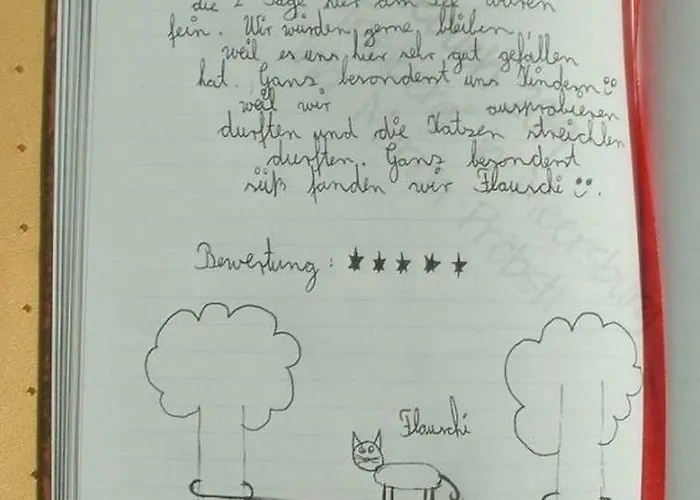 die 2 Tage hier am See waren
fein. Wir würden gerne bleiben,
weil es uns hier sehr gut gefallen
hat. Ganz besondert uns Kindern
weil wir ausprobieren
durften und die Katzen streichlen
durften. Ganz besondert
süß fanden wir Flauschi
Bewertung: ★★★★★
Flauschi